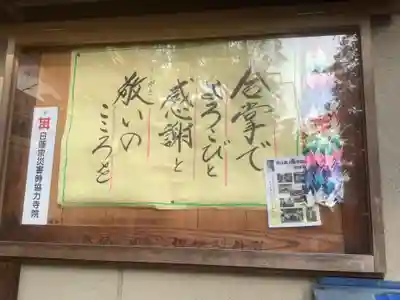 合掌で
よろこびと
感謝と
敬いの
こころを
日蓮宗災害時協力寺院